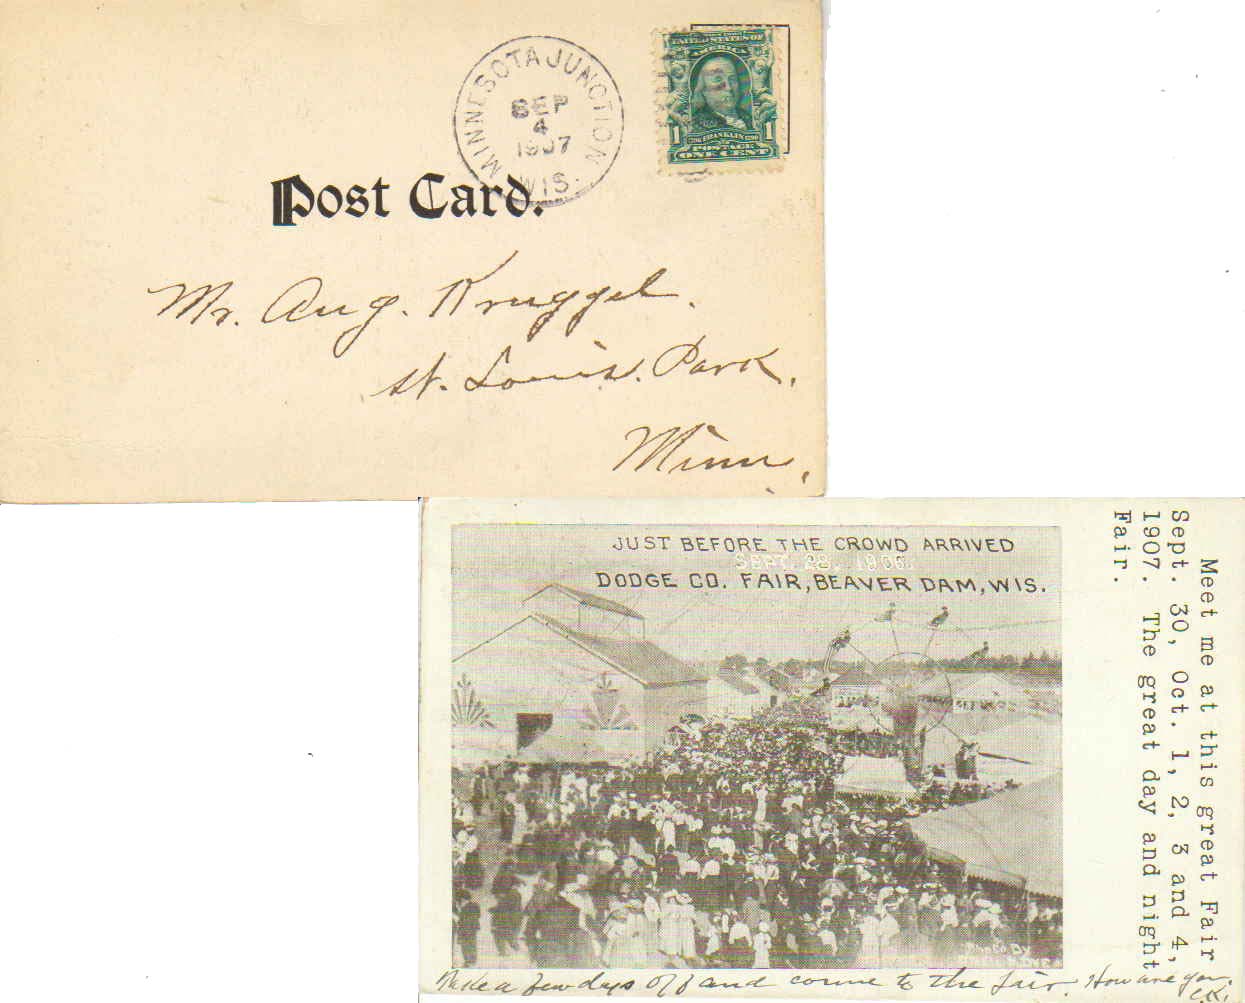 MINNESOTA JUNCTION
SEP
4
1907
WIS.
UNITED STATES OF
AMERICA
1 FRANKLIN 1
POSTAGE
ONE CENT
Post Card.
Mr. Aug. Kruggel.
St. Louis. Park,
Minn,
JUST BEFORE THE CROWD ARRIVED
SEPT. 28. 1906.
DODGE CO. FAIR, BEAVER DAM, WIS.
Photo By
Meet me at this great Fair
Sept. 30, Oct. 1, 2, 3 and 4,
1907. The great day and night
Fair.
Make a few days off and come to the fair. How are you.
C.K.